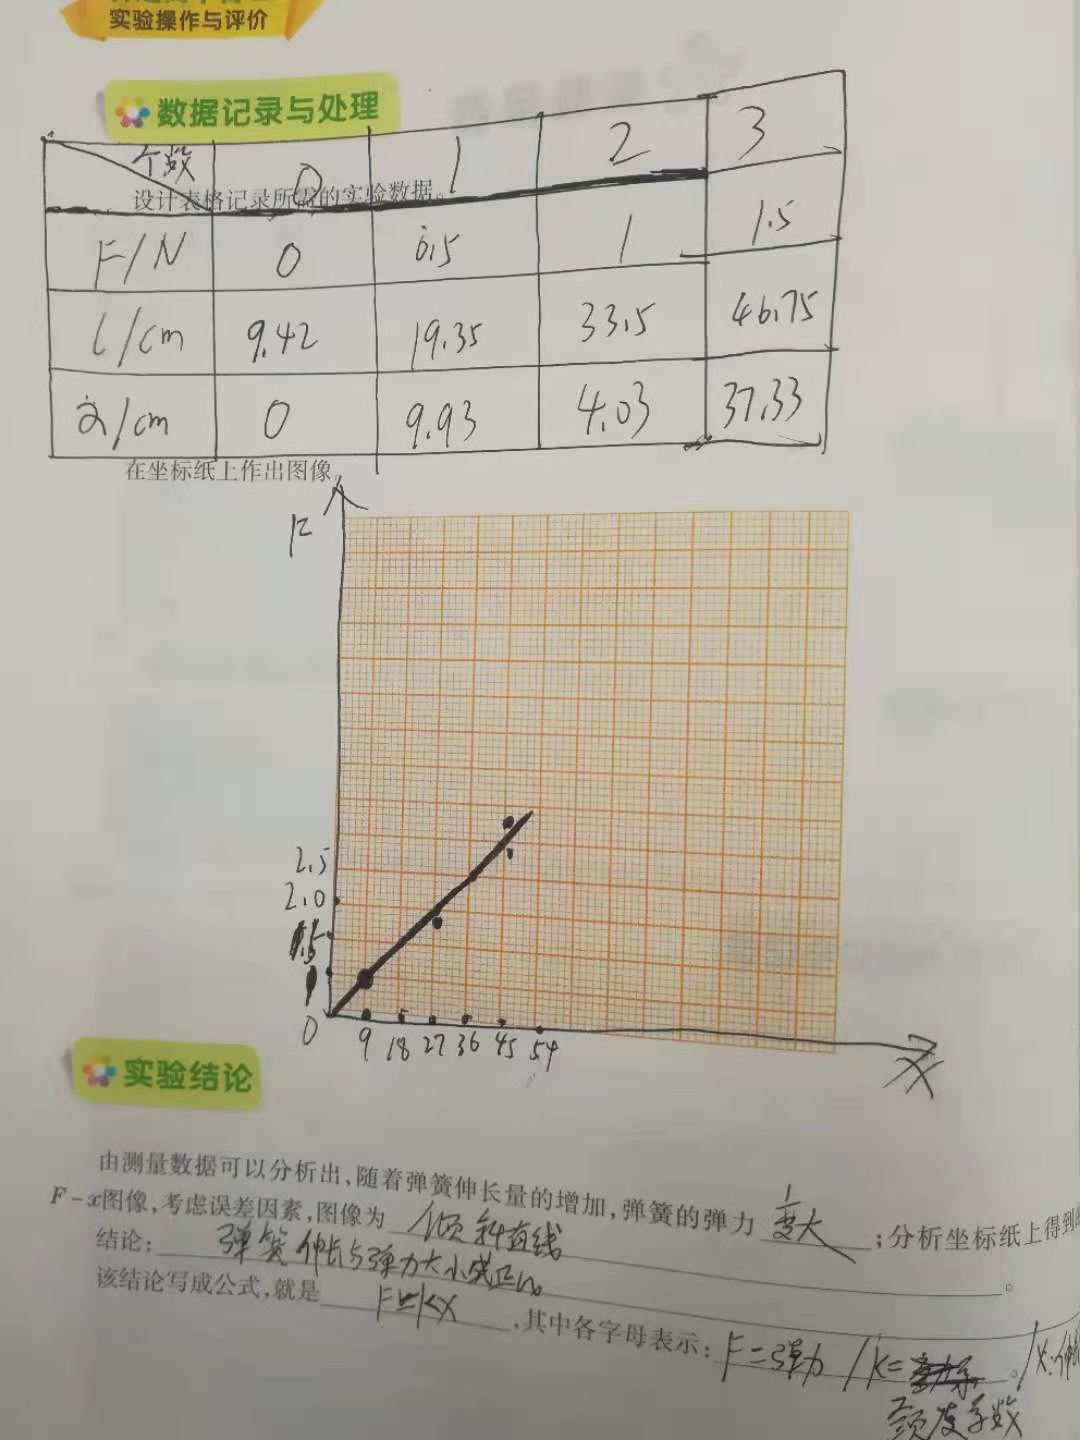 实验操作与评价
数据记录与处理
个数 0 1 2 3
设计表格记录所需的实验数据。
F/N 0 0.5 1 1.5
l/cm 9.42 19.35 33.5 46.75
x/cm 0 9.93 4.03 37.33
在坐标纸上作出图像。
F
2.5
2.0
1.5
1
0 9 18 27 36 45 54
X
实验结论
由测量数据可以分析出,随着弹簧伸长量的增加,弹簧的弹力 变大 ;分析坐标纸上得到的
F-x图像,考虑误差因素,图像为 倾斜直线 。
结论: 弹簧伸长与弹力大小成正比。
该结论写成公式,就是 F=kx ,其中各字母表示: F=弹力 / k= 。/x:伸长
劲度系数